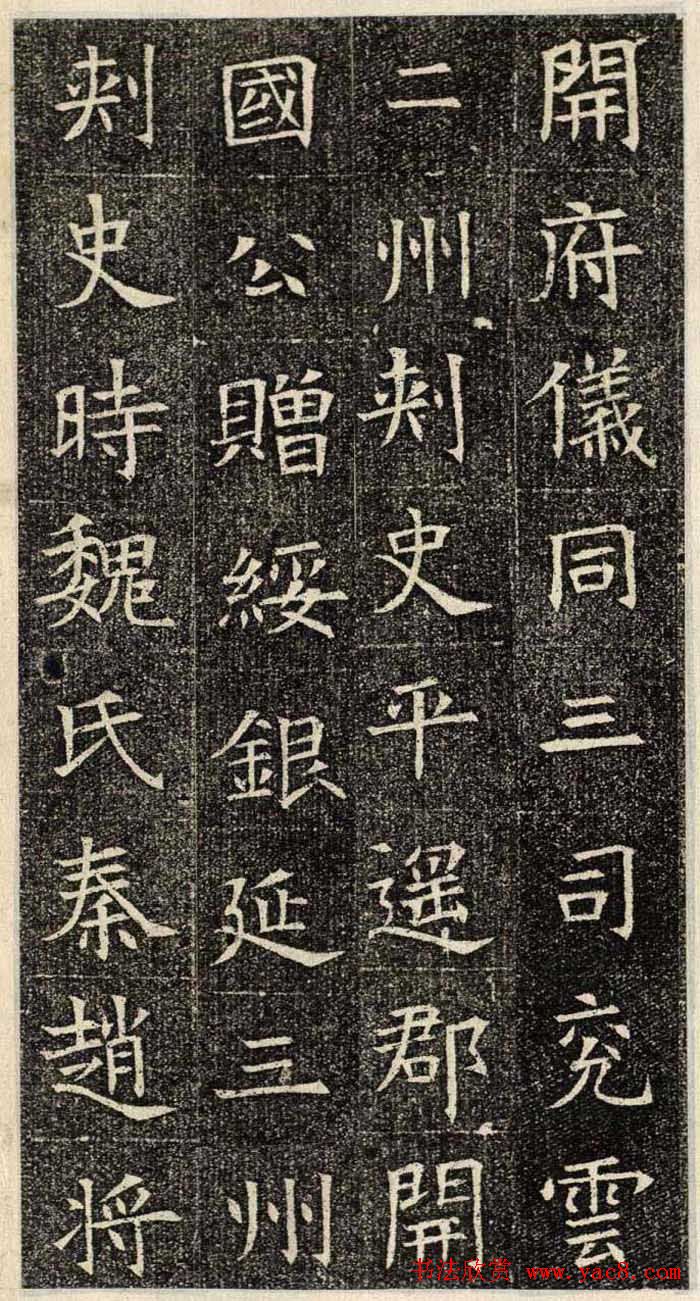 開府儀同三司兖雲
二州刾史平遥郡開
國公贈綏銀延三州
刾史時魏氏秦趙将
书法欣赏 www.yac8.com